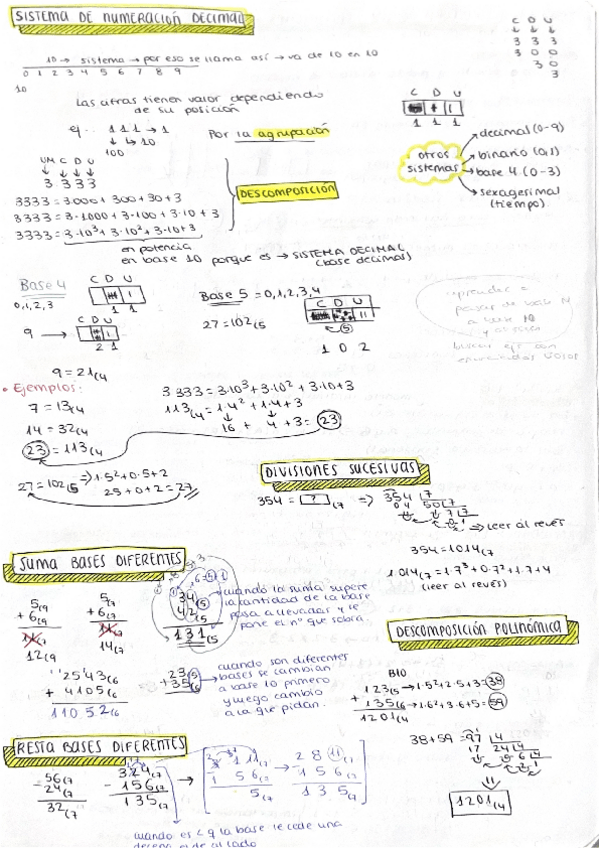 SISTEMA DE NUMERACIÓN DECIMAL
10 → sistema → por eso se llama así → va de 10 en 10
0 1 2 3 4 5 6 7 8 9
10
C D U
3 3 3
3 0 0
3 0
3
Las otras tienen valor dependiendo
de su posición
ej.. 1 1 1 → 1
→ 10
100
Por la agrupación
C D U
1 1 1
otros
sistemas
decimal (0-9)
binario (0,1)
base 4 (0-3)
sexagesimal
(tiempo).
UM C D U
3. 3 3 3
3333 = 3000 + 300 + 30 + 3
3333 = 3·1000 + 3·100 + 3·10 + 3
3333 = 3·10³ + 3·10² + 3·10 + 3
DESCOMPOSICIÓN
en potencia
en base 10 porque es → SISTEMA DECIMAL
(base decimas)
Base 4
0,1,2,3
C D U
1 1
9 →
C D U
2 1
9 = 21(4
Base 5 = 0,1,2,3,4
27 = 102(5
C D U
(5)
1 0 2
aprender a
pasar de base
a base 10
• Ejemplos:
7 = 13(4
14 = 32(4
23 = 113(4
27 = 102(5 => 1·5² + 0·5 + 2
25 + 0 + 2 = 27
3333 = 3·10³ + 3·10² + 3·10 + 3
113(4 = 1·4² + 1·4 + 3
16 + 4 + 3 = 23
DIVISIONES SUCESIVAS
354 = ? (7 => 354 7
04 50 7
1 7 7
→ leer al revés
354 = 1014(7
1.014(7 = 1·7³ + 0·7² + 1·7 + 4
(leer al revés)
SUMA BASES DIFERENTES
5(9
+ 6(9
12(9
5(7
+ 6(7
14(7
34
42(5
131(5
cuando la suma supere
la cantidad de la base
pasa a llevadar y se
pone el nº que sobra.
2543(6
+ 4105(6
11052(6
23(5
+ 35(6
cuando son diferentes
bases se cambian
a base 10 primero
y luego cambio
a la que pidan.
DESCOMPOSICIÓN POLINÓMICA
B10
123(5 → 1·5² + 2·5 + 3 = 38
+ 135(6 → 1·6² + 3·6 + 5 = 59
1201(4
38 + 59 = 97 4
17 24 4
1 6 4
1201(4
RESTA BASES DIFERENTES
56(7
- 24(7
32(7
324(7
- 156(7
135(7
1 5 6(7
5(7
2 8 11(7
1 5 6(7
1 3 5(7
cuando es < q la base le cede una
decena el de al lado